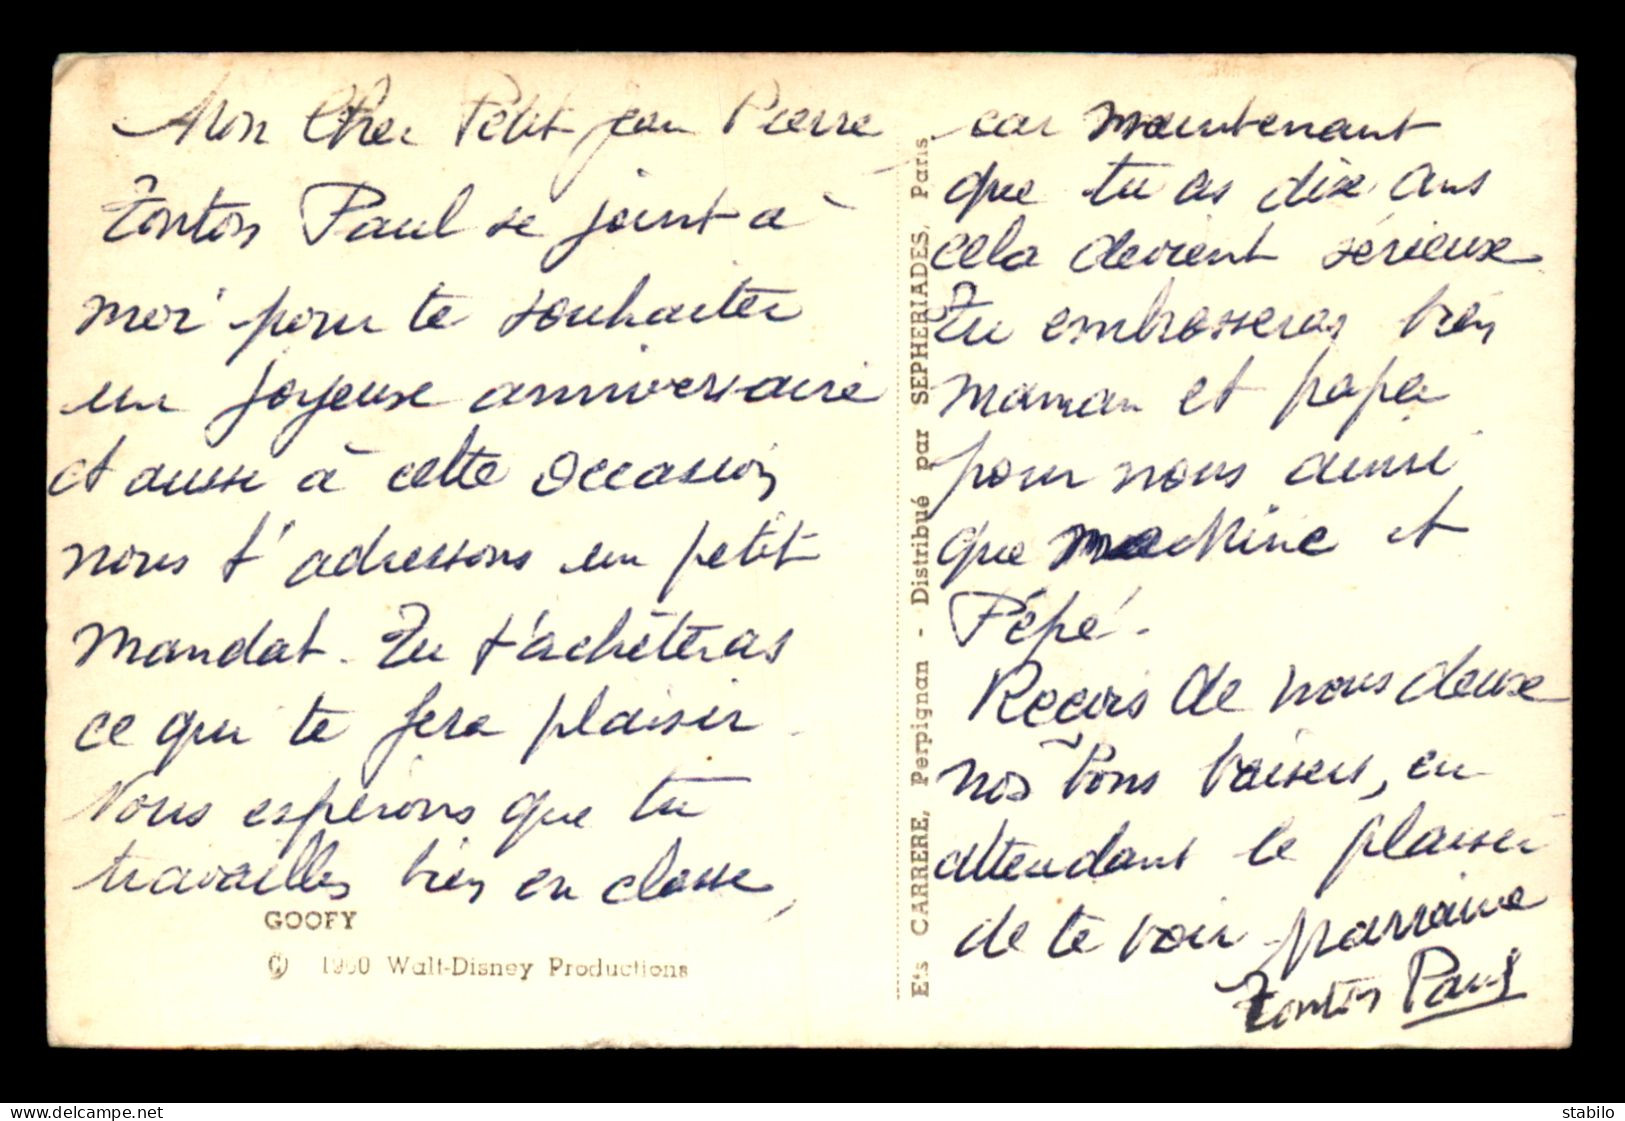 Mon Cher Petit jean Pierre
Tonton Paul se joint à
moi pour te souhaiter
un joyeuse anniversaire
et aussi à cette occasion
nous t'adressons un petit
mandat. Tu t'achèteras
ce qui te fera plaisir.
Nous espérons que tu
travailles bien en classe,
GOOFY
© 1960 Walt-Disney Productions
Ets CARRERE, Perpignan - Distribué par SEPHERIADES, Paris
car maintenant
que tu as dix ans
cela devient sérieux
Tu embrasseras bien
maman et papa
pour nous ainsi
que et
Pépé.
Reçois de nous deux
nos bons baisers, en
attendant le plaisir
de te voir marraine
Tonton Paul
www.delcampe.net
stabilo